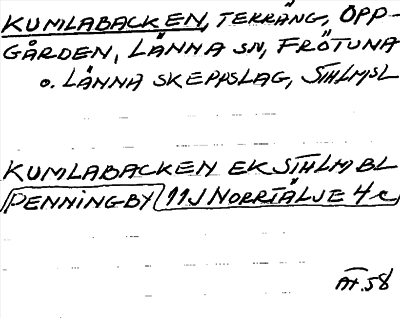 KUMLABACKEN, TERRÄNG, OPP-
GÅRDEN, LÄNNA SN, FRÖTUNA
O. LÄNNA SKEPPSLAG, STHLMSL
KUMLABACKEN EK STHLM BL
PENNINGBY 11J NORRTÄLJE 4 c